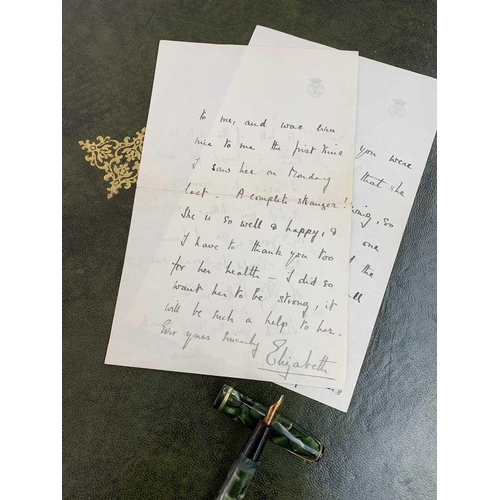 to me, and was even
nice to me the first time
I saw her on Monday
last - A complete stranger!
She is so well & happy, &
I have to thank you too
for her health - I did so
want her to be strong, it
will be such a help to her -
Ever yours sincerely
Elizabeth
you were
that she
so
one
the